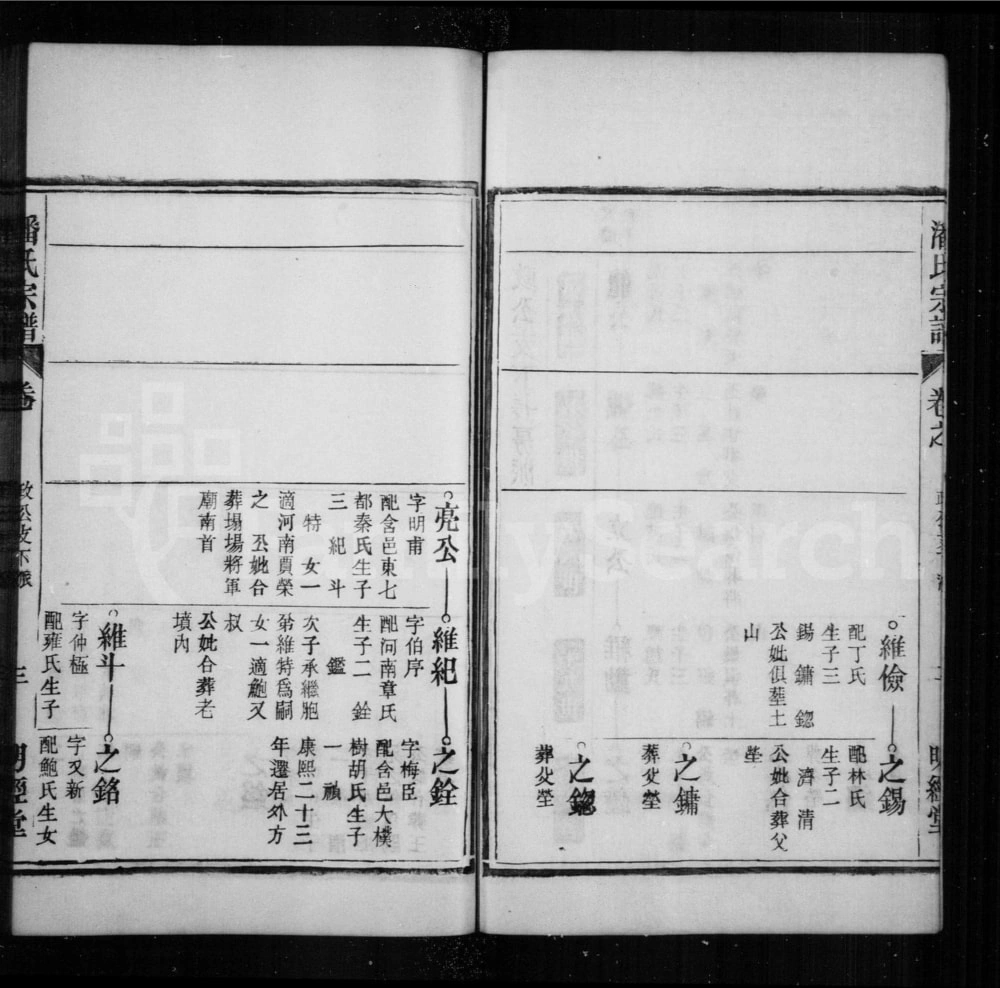 潘氏宗譜
卷之
明經堂
維儉
配丁氏
生子三
錫 鏞 鍃
公妣俱塟土
山
之錫
配林氏
生子二
濟 清
公妣合葬父
塋
之鏞
葬父塋
之鍃
葬父塋
亮公
字明甫
配含邑東七
都秦氏生子
三 紀 斗
特 女一
適河南賈榮
之 公妣合
葬塌場將軍
廟南首
維紀
字伯序
配河南章氏
生子二 銓
鑑
次子承繼胞
弟維特爲嗣
女一適鮑又
叔
公妣合葬老
墳內
之銓
字梅臣
配含邑大樸
樹胡氏生子
一 禎
康熙二十三
年遷居外方
維斗
字仲極
配雍氏生子
之銘
字又新
配鮑氏生女
潘氏宗譜
卷
三
明經堂
FamilySearch